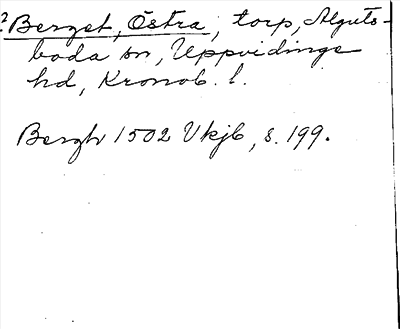 ?Berget, Östra, torp, Alguts-
boda sn, Uppvidinge
hd, Kronob. l.
Bergh 1502 Vkjb, s. 199.